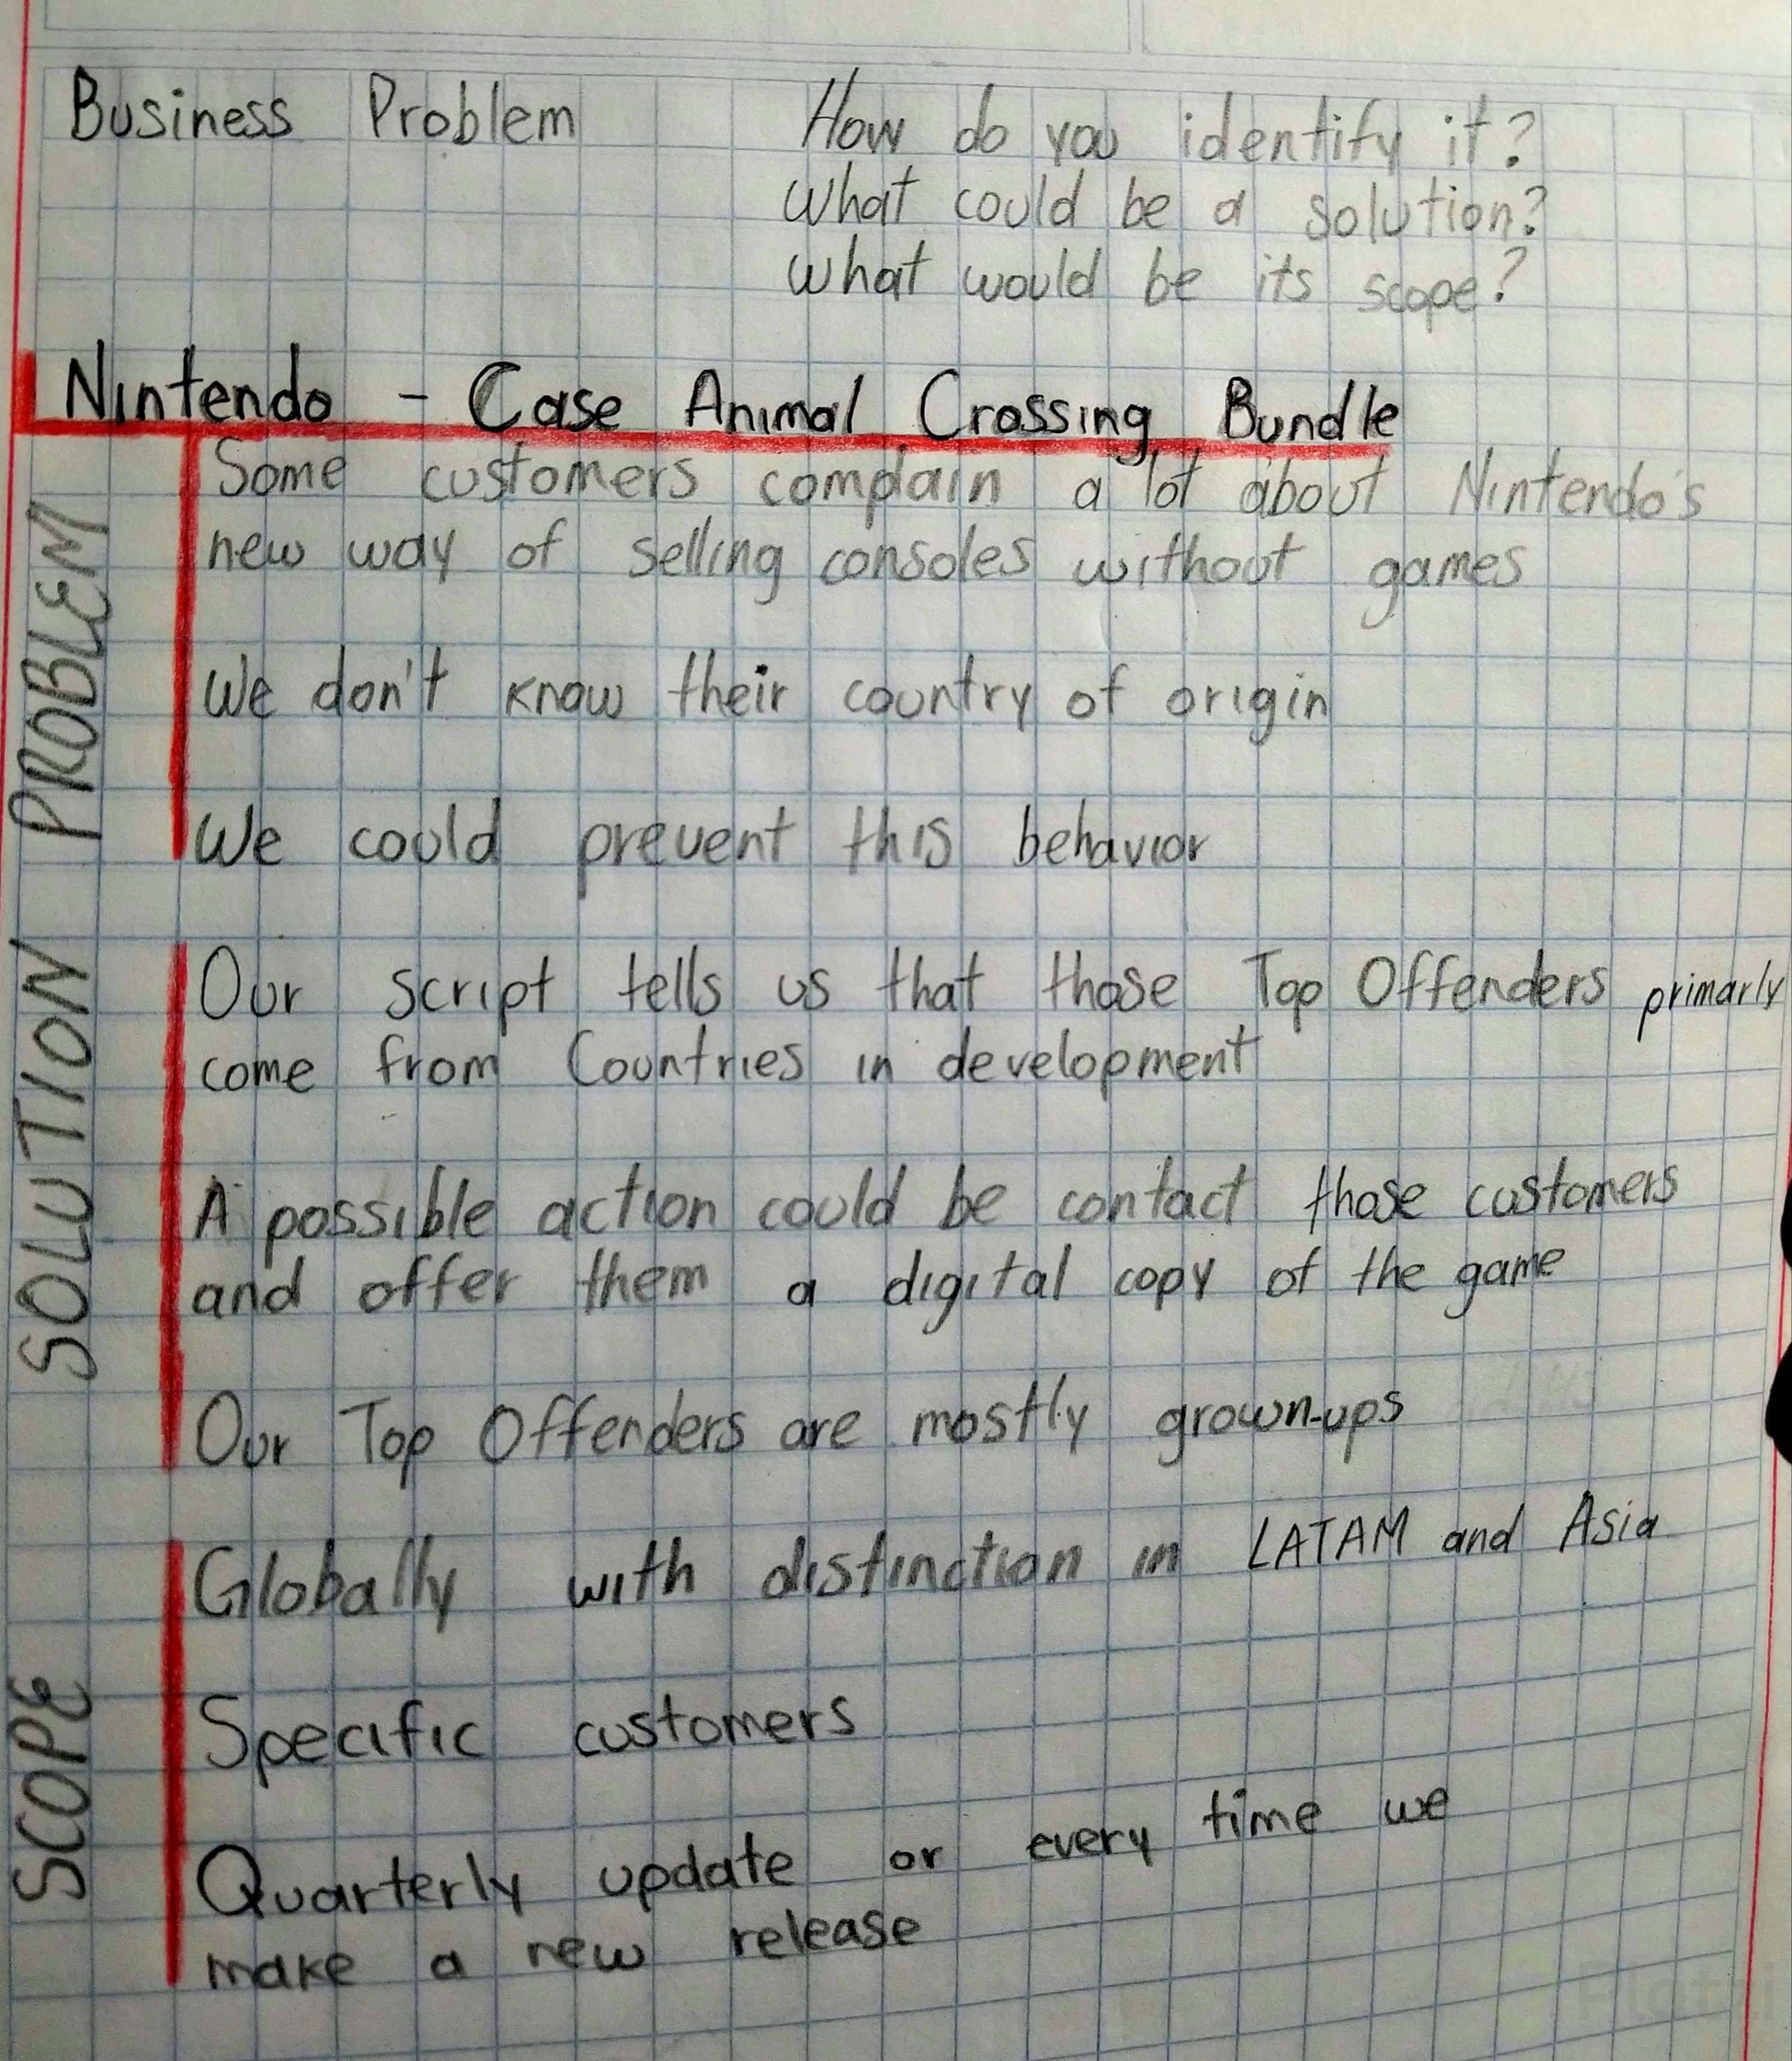 Business Problem
How do you identify it?
What could be a solution?
What would be its scope?
Nintendo - Case Animal Crossing Bundle
PROBLEM
Some customers complain a lot about Nintendo's
new way of selling consoles without games
We don't know their country of origin
We could prevent this behavior
SOLUTION
Our script tells us that those Top Offenders primarly
come from Countries in development
A possible action could be contact those customers
and offer them a digital copy of the game
Our Top Offenders are mostly grown-ups
SCOPE
Globally with distinction in LATAM and Asia
Specific customers
Quarterly update or every time we
make a new release
Platzi